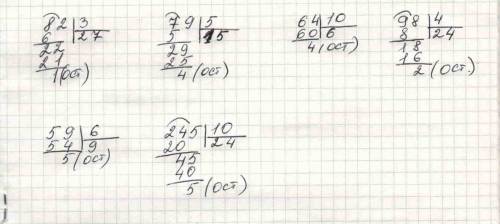 82 | 3
6 | 27
22
21
1(ост)
79 | 5
5 | 15
29
25
4 (ост)
64 | 10
60 | 6
4 (ост)
98 | 4
8 | 24
18
16
2 (ост)
59 | 6
54 | 9
5 (ост)
245 | 10
20 | 24
45
40
5 (ост)